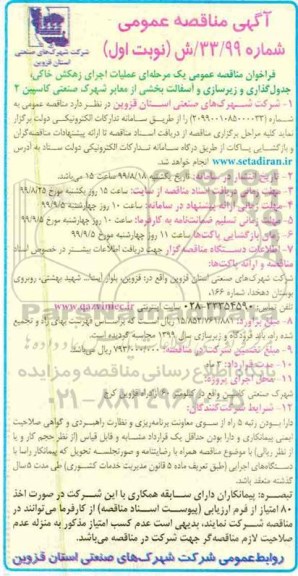 آگهی مناقصه عمومی
شماره ۳۳/۹۹/ش (نوبت اول)
شرکت شهرک‌های صنعتی
استان قزوین
فراخوان مناقصه عمومی یک مرحله‌ای عملیات اجرای زهکش خاکی،
جدول‌گذاری و زیرسازی و آسفالت بخشی از معابر شهرک صنعتی کاسپین ۲
۱- شرکت شهرک‌های صنعتی استان قزوین در نظر دارد مناقصه عمومی به
شماره (۲۰۹۹۰۰۱۰۸۵۰۰۰۰۳۳) را از طریق سامانه تدارکات الکترونیکی دولت برگزار
نماید کلیه مراحل برگزاری مناقصه از دریافت اسناد مناقصه تا ارائه پیشنهادات مناقصه‌گران
و بازگشایی پاکات از طریق درگاه سامانه تدارکات الکترونیکی دولت ستاد به آدرس
www.setadiran.ir انجام خواهد شد.
۲- تاریخ انتشار در سامانه: یکشنبه ۹۹/۸/۱۸ ساعت ۱۵ می‌باشد.
۳- مهلت زمانی دریافت اسناد مناقصه از سایت: ساعت ۱۵ روز یکشنبه مورخ ۹۹/۸/۲۵
۴- مهلت زمانی ارائه پیشنهاد در سامانه: ساعت ۱۰ روز چهارشنبه ۹۹/۹/۵
۵- مهلت زمانی تسلیم ضمانتنامه به کارفرما: ساعت ۱۰ روز چهارشنبه مورخ ۹۹/۹/۵
۶- زمان بازگشایی پاکت‌ها: ساعت ۱۱ روز چهارشنبه مورخ ۹۹/۹/۵
۷- اطلاعات دستگاه مناقصه‌گزار جهت دریافت اطلاعات بیشتر در خصوص اسناد
مناقصه و ارائه پاکت‌ها:
شرکت شهرک‌های صنعتی استان قزوین واقع در: قزوین، بلوار شهید بهشتی، روبروی
بوستان دهخدا، شماره ۱۶۶،
تلفن تماس: ۳۳۲۵۴۵۹۰-۰۲۸ سایت اینترنتی www.qazviniec.ir
۸- مبلغ برآورد: ریال است که براساس فهرست بهای راه و تجمیع
شده راه، باند فرودگاه و زیرسازی سال ۱۳۹۹ محاسبه گردیده است.
۹- مبلغ تضمین شرکت در مناقصه: ریال می‌باشد.
۱۰- مدت قرارداد:
۱۱- محل اجرای پروژه:
شهرک صنعتی کاسپین واقع در کیلومتر آزادراه قزوین کرج
۱۲- شرایط شرکت‌کنندگان:
دارا بودن رتبه ۵ راه از سوی معاونت برنامه‌ریزی و نظارت راهبردی و گواهی صلاحیت
ایمنی پیمانکاری و دارا بودن حداقل یک قرارداد مشابه و قابل قیاس (از نظر حجم کار و یا
از نظر ریالی) با موضوع مناقصه همراه با رضایتنامه و صورتجلسه تحویل که پیمانکار راسا با
دستگاه‌های اجرایی (طبق تعریف ماده ۵ قانون مدیریت خدمات کشوری) طی مدت ۵ سال
گذشته منعقد باشد.
تبصره: پیمانکاران دارای سابقه همکاری با این شرکت در صورت اخذ
۸۰ امتیاز از فرم ارزیابی (پیوست اسناد مناقصه) از کارفرما می‌توانند در
مناقصه شرکت نمایند، بدیهی است عدم کسب امتیاز مذکور به منزله عدم
صلاحیت لازم مناقصه‌گر جهت شرکت در مناقصه می‌باشد.
روابط‌عمومی شرکت شهرک‌های صنعتی استان قزوین